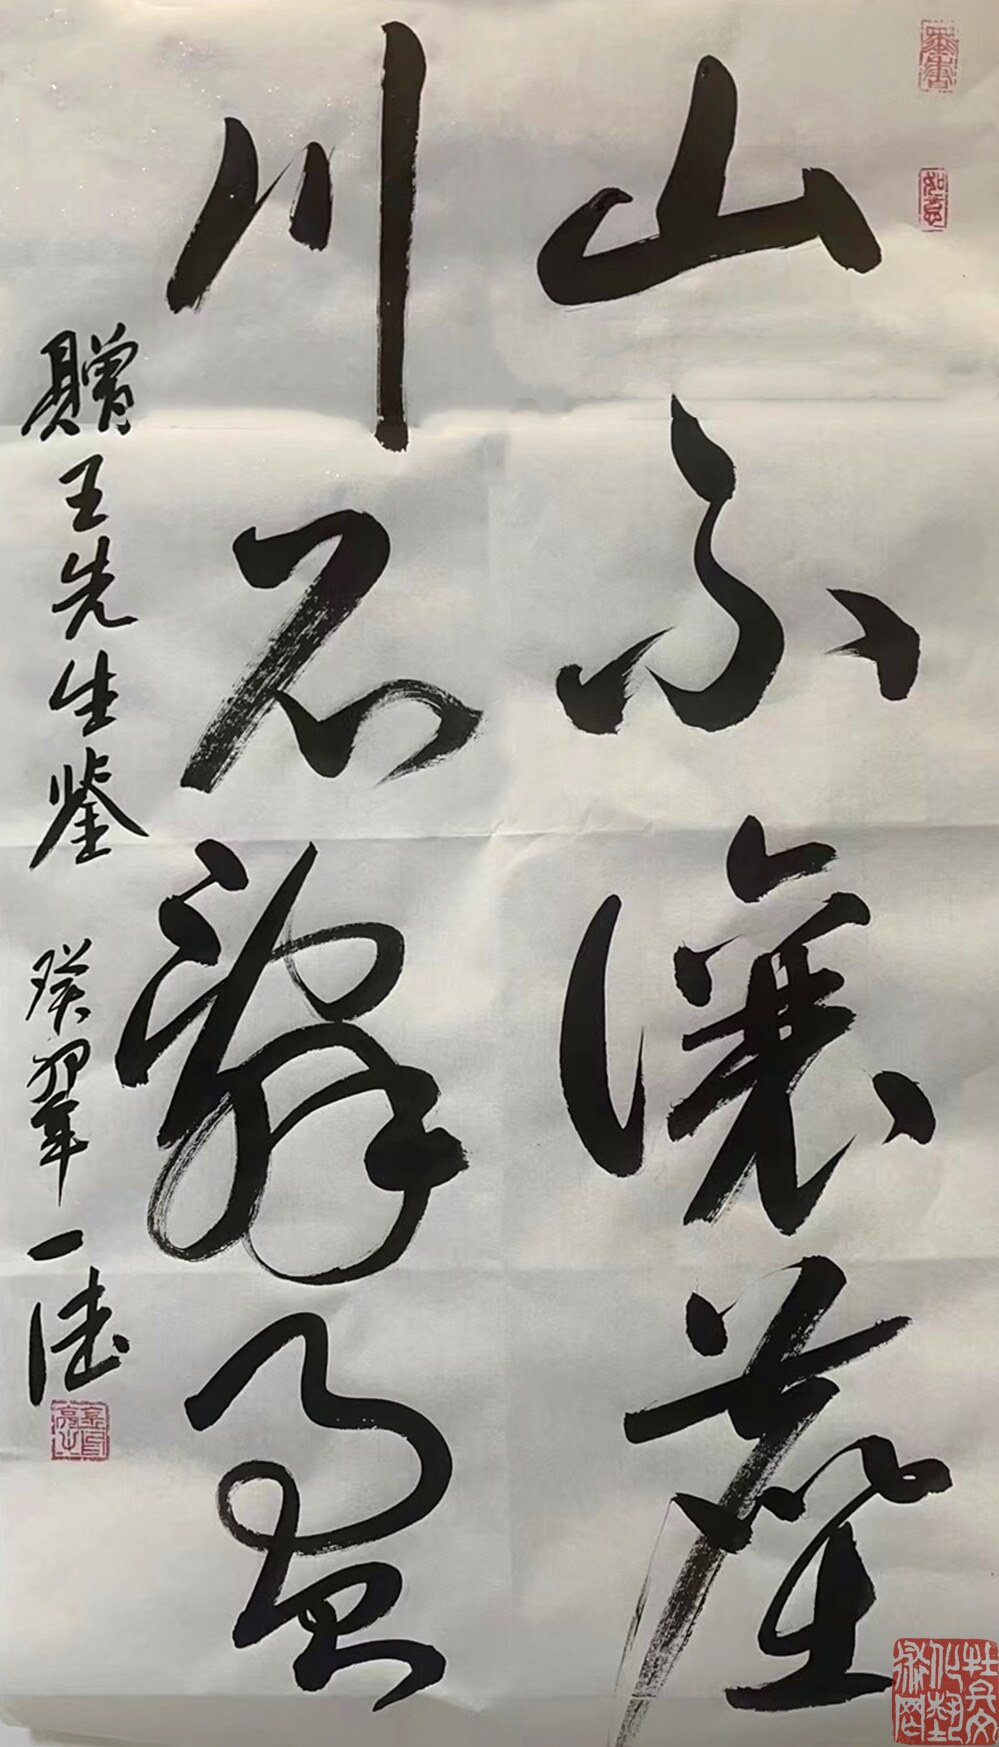 如意
山不讓塵
川不辭盈
贈王先生鉴 癸卯年